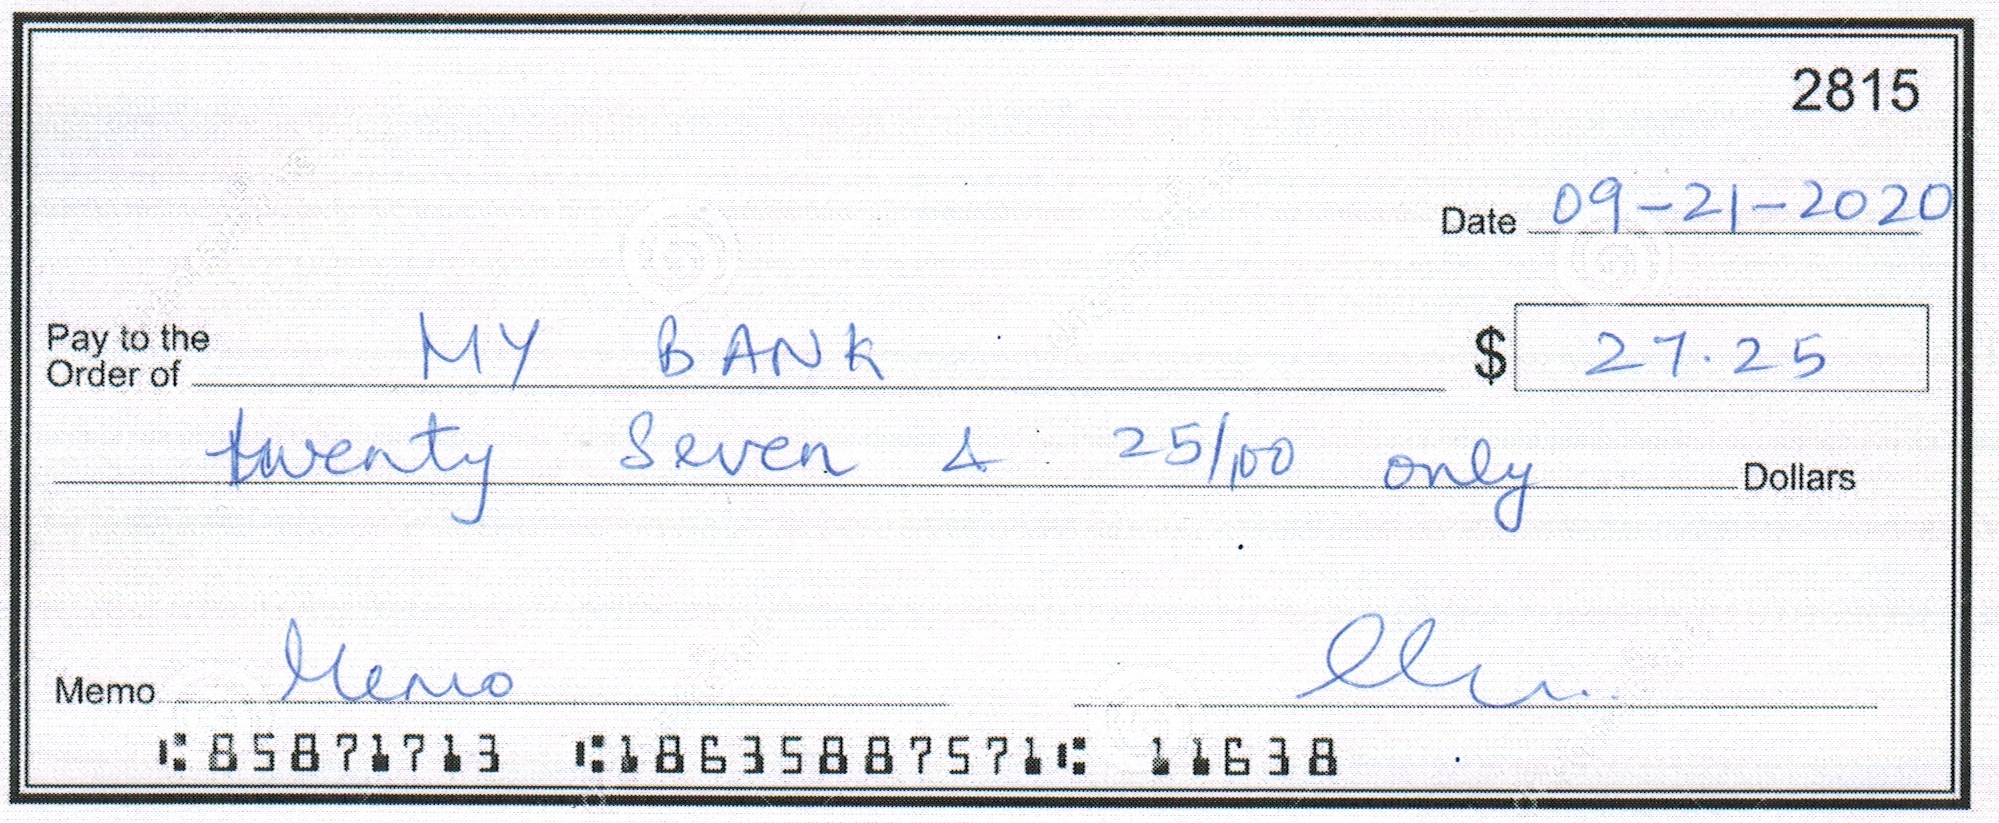 2815
Date 09-21-2020
Pay to the
Order of MY BANK $ 27.25
twenty Seven & 25/100 only Dollars
Memo Memo
⑆85871713 ⑆18635887571⑆ 11638